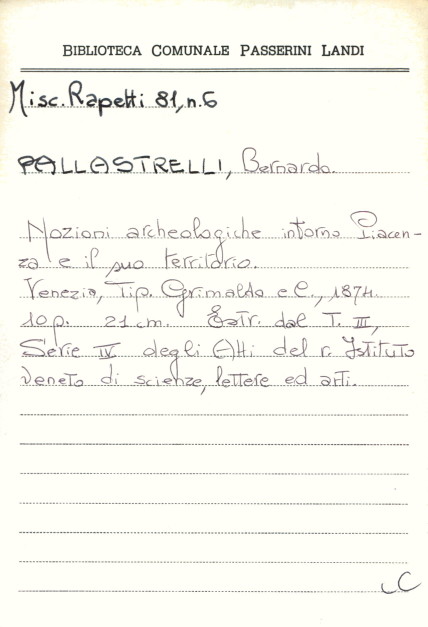 BIBLIOTECA COMUNALE PASSERINI LANDI
Misc. Rapetti 81, n. 6
PALLASTRELLI, Bernardo.
Nozioni archeologiche intorno Piacen-
za e il suo territorio.
Venezia, Tip. Grimaldo e C., 1874.
10 p. 21 cm. Estr. dal T. III,
Serie IV degli Atti del r. Istituto
Veneto di scienze, lettere ed arti.
C